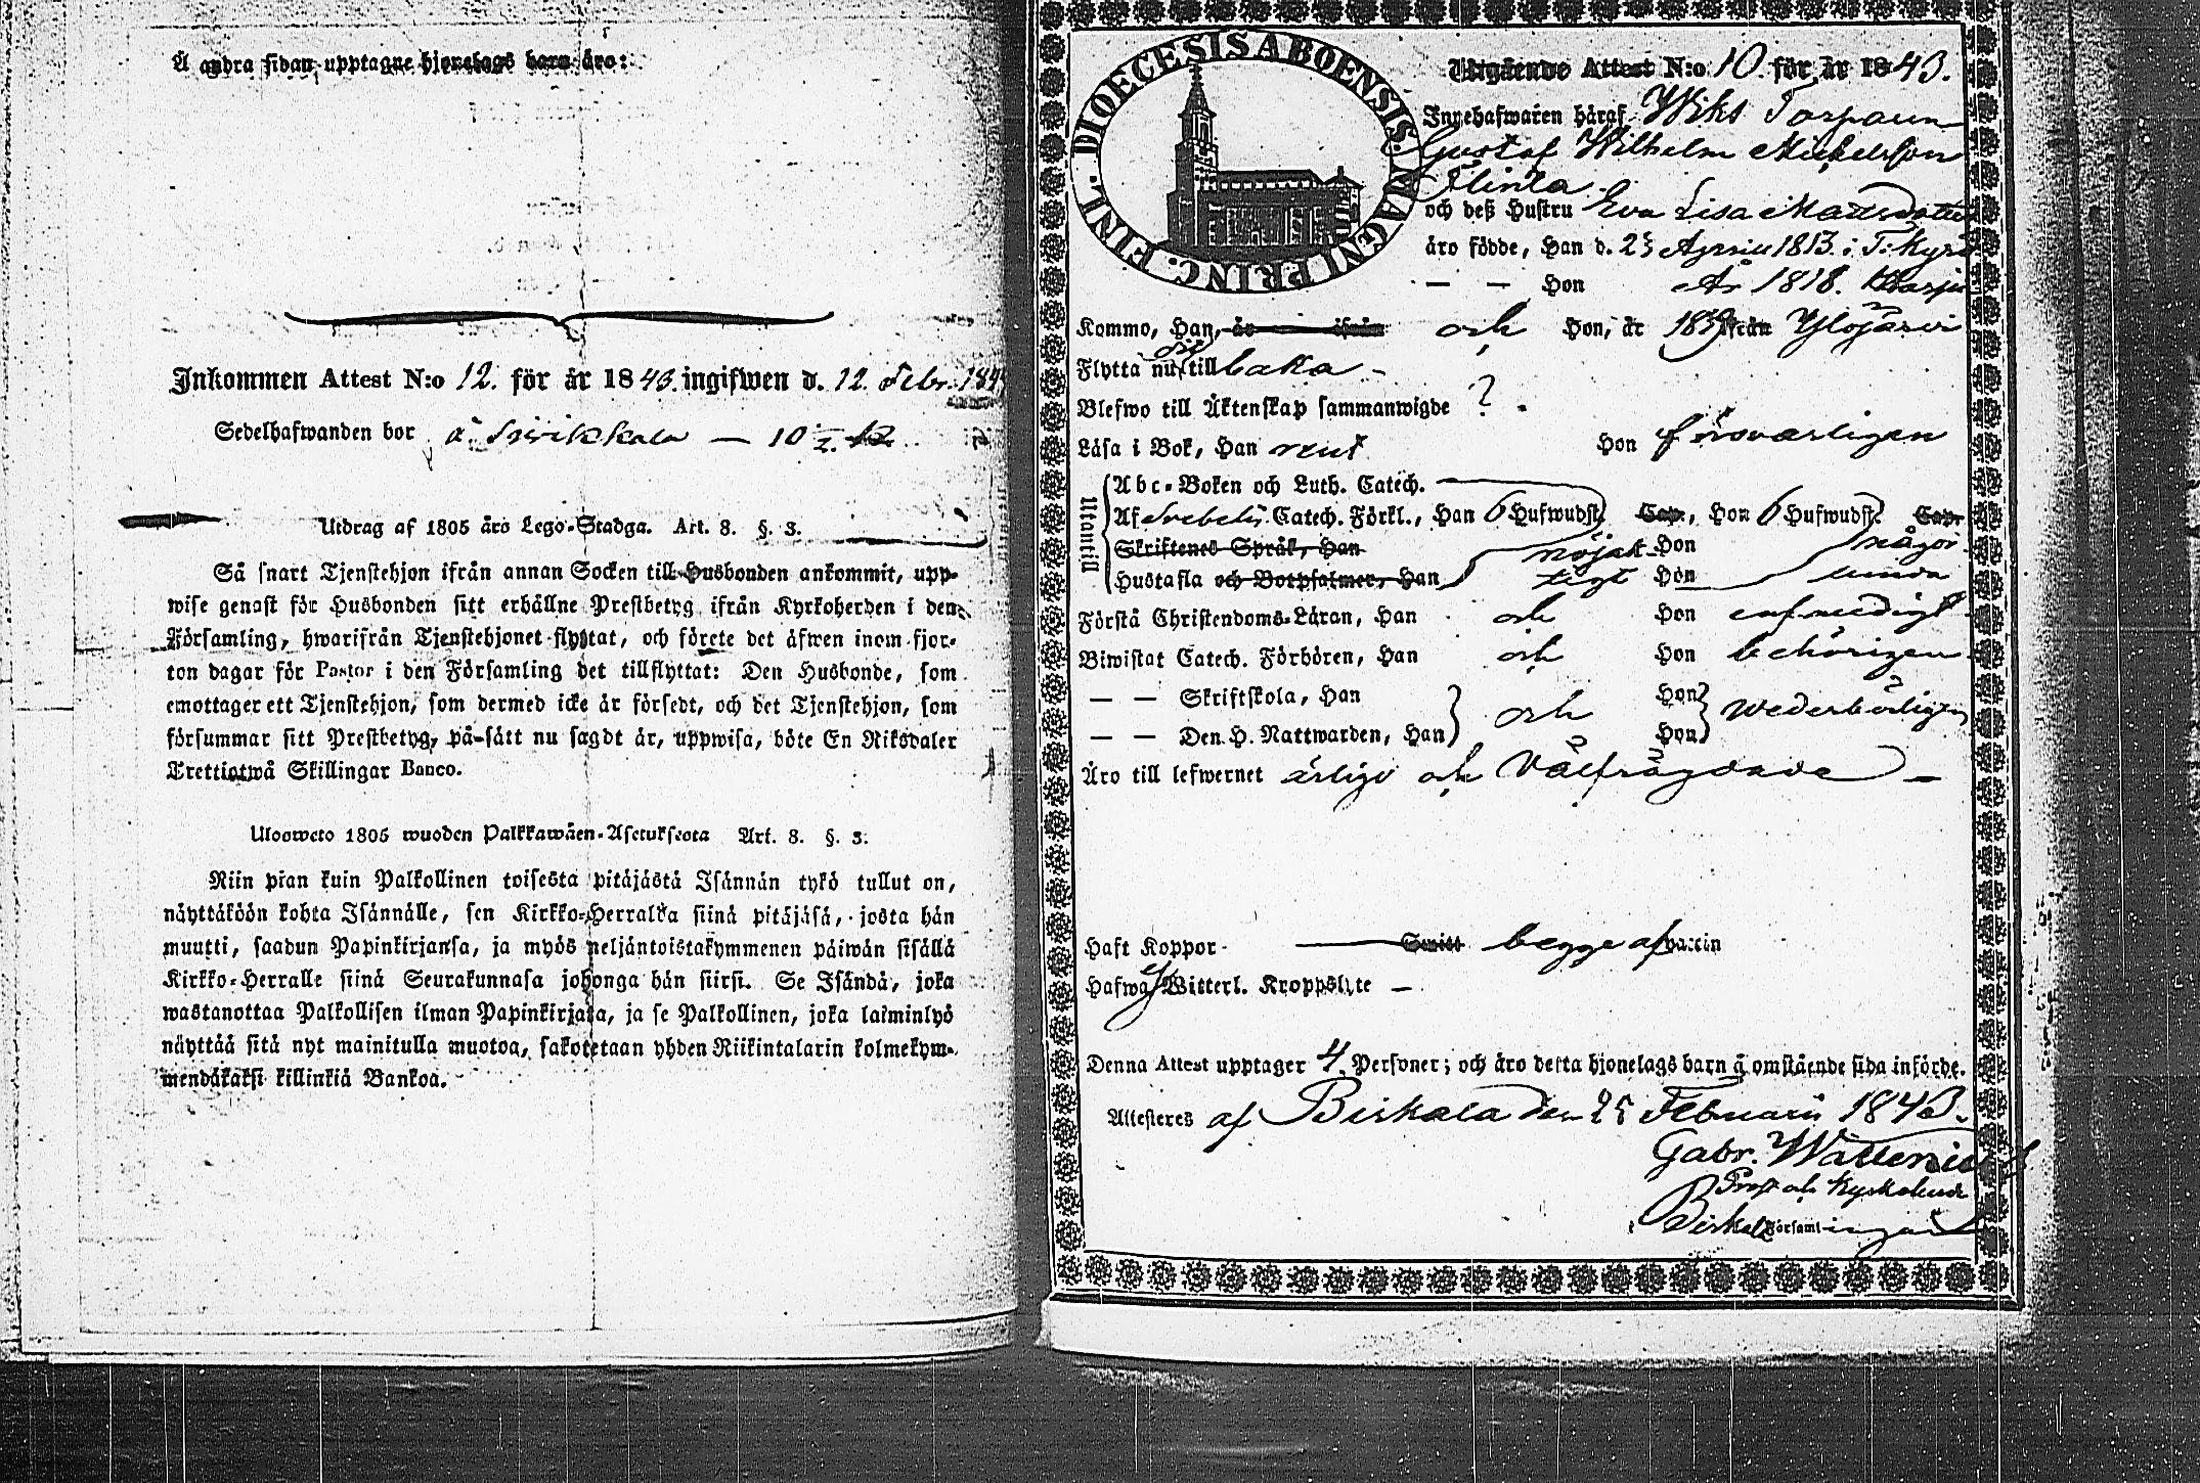 Å andra sidan upptagne hjonelags barn äro:
Inkommen Attest N:o 12. för år 1843. ingifwen d. 12. Febr. 184
Sedelhafwanden bor å — 10
Utdrag af 1805 års Lego-Stadga. Art. 8. §. 3.
Så snart Tjenstehjon ifrån annan Socken till Husbonden ankommit, upp-
wise genast för Husbonden sitt erhållne Prestbetyg ifrån Kyrkoherden i den
Församling, hwarifrån Tjenstehjonet flyttat, och förete det äfwen inom fjor-
ton dagar för Pastor i den Församling det tillflyttat: Den Husbonde, som
emottager ett Tjenstehjon, som dermed icke är försedt, och det Tjenstehjon, som
försummar sitt Prestbetyg, på-sätt nu sagdt är, uppwisa, böte En Riksdaler
Trettiotwå Skillingar Banco.
Uloosweto 1805 wuoden Palkkawäen-Asetuksesta Art. 8. §. 3.
Niin pian kuin Palkollinen toisesta pitäjästä Isännän tykö tullut on,
näyttäköön kohta Isännälle, sen Kirkko-Herralda siinä pitäjäsä, josta hän
muutti, saadun Papinkirjansa, ja myös neljäntoistakymmenen päiwän sisällä
Kirkko-Herralle siinä Seurakunnasa johonga hän siirsi. Se Isändä, joka
wastanottaa Palkollisen ilman Papinkirjata, ja se Palkollinen, joka laiminlyö
näyttää sitä nyt mainitulla muotoa, sakotetaan yhden Riikintalarin kolmekym-
mendäkaksi killinkiä Bankoa.
DIOECESIS ABOENSIS. MAGNI PRINC. FINL.
Utgående Attest N:o 10. för år 1843.
Innehafwaren häraf Wiks Torparen
Gustaf Wilhelm Mickelsson
Flinta
och deß Hustru Eva Lisa Matsdotter
äro födde, Han d. 23 Aprill 1813. i T: Kyrö
— — Hon År 1818.
Kommo, Han, är ifrån och Hon, år 1839 ifrån Ylöjärvi
Flytta nu till baka —
Blefwo till Äktenskap sammanwigde ? .
Läsa i Bok, Han rent Hon försvarligen
Utantill
Abc-Boken och Luth. Catech.
Af Svebelii Catech. Förkl., Han 6 Hufwudst. Cap., Hon 6 Hufwudst. Cap.
Skriftenes Språk, Han nöjak- Hon någor
Hustafla och Botpsalmer, Han tigt Hon lunda
Förstå Christendoms-Läran, Han och Hon enfaldigt
Biwistat Catech. Förhören, Han och Hon behörigen
— — Skriftskola, Han Hon
och wederbörligen
— — Den H. Nattwarden, Han Hon
Äro till lefwernet ärlige och välfrägdade —
Haft Koppor — Smitt begge af vaccin
Hafwa ej Witterl. Kroppslyte —
Denna Attest upptager 4 Personer; och äro detta hjonelags barn å omstående sida införde.
Attesteres af Birkala den 25 Februarii 1843.
Gabr.
Prost och Kyrkoherde
Birkala Församling